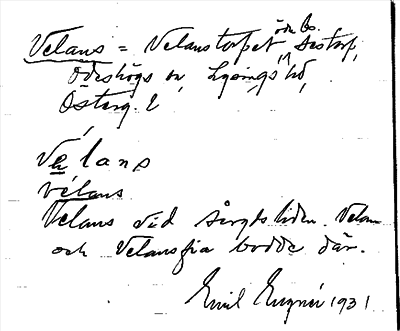 öde bs.
Velans = Velanstorpet, Sistorp,
Ödeshögs sn, Lysings hd,
Österg. l
Velans
vélans
Velans vid Åvgdsliden. Velam
och Velansfia bodde där.
Emil Engnér 1931